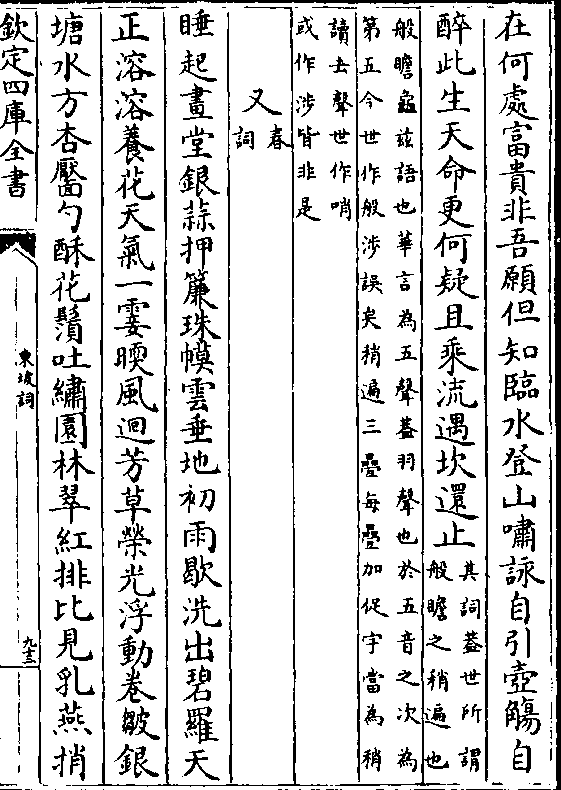 在何處富貴非吾願但知臨水登山嘯詠自引壺觴自
醉此生天命更何疑且乘流遇坎還止
其詞蓋世所謂
般瞻之稍遍也
般瞻龜茲語也華言為五聲蓋羽聲也於五音之次為
第五今世作般涉誤矣稍遍三疊每疊加促字當為稍
讀去聲世作哨
或作涉皆非是
又
春
詞
睡起畫堂銀蒜押簾珠幙雲垂地初雨歇洗出碧羅天
正溶溶養花天氣一霎㬉風迴芳草榮光浮動卷皺銀
塘水方杏靨勻酥花鬚吐繡園林翠紅排比見乳燕捎
欽定四庫全書
東坡詞